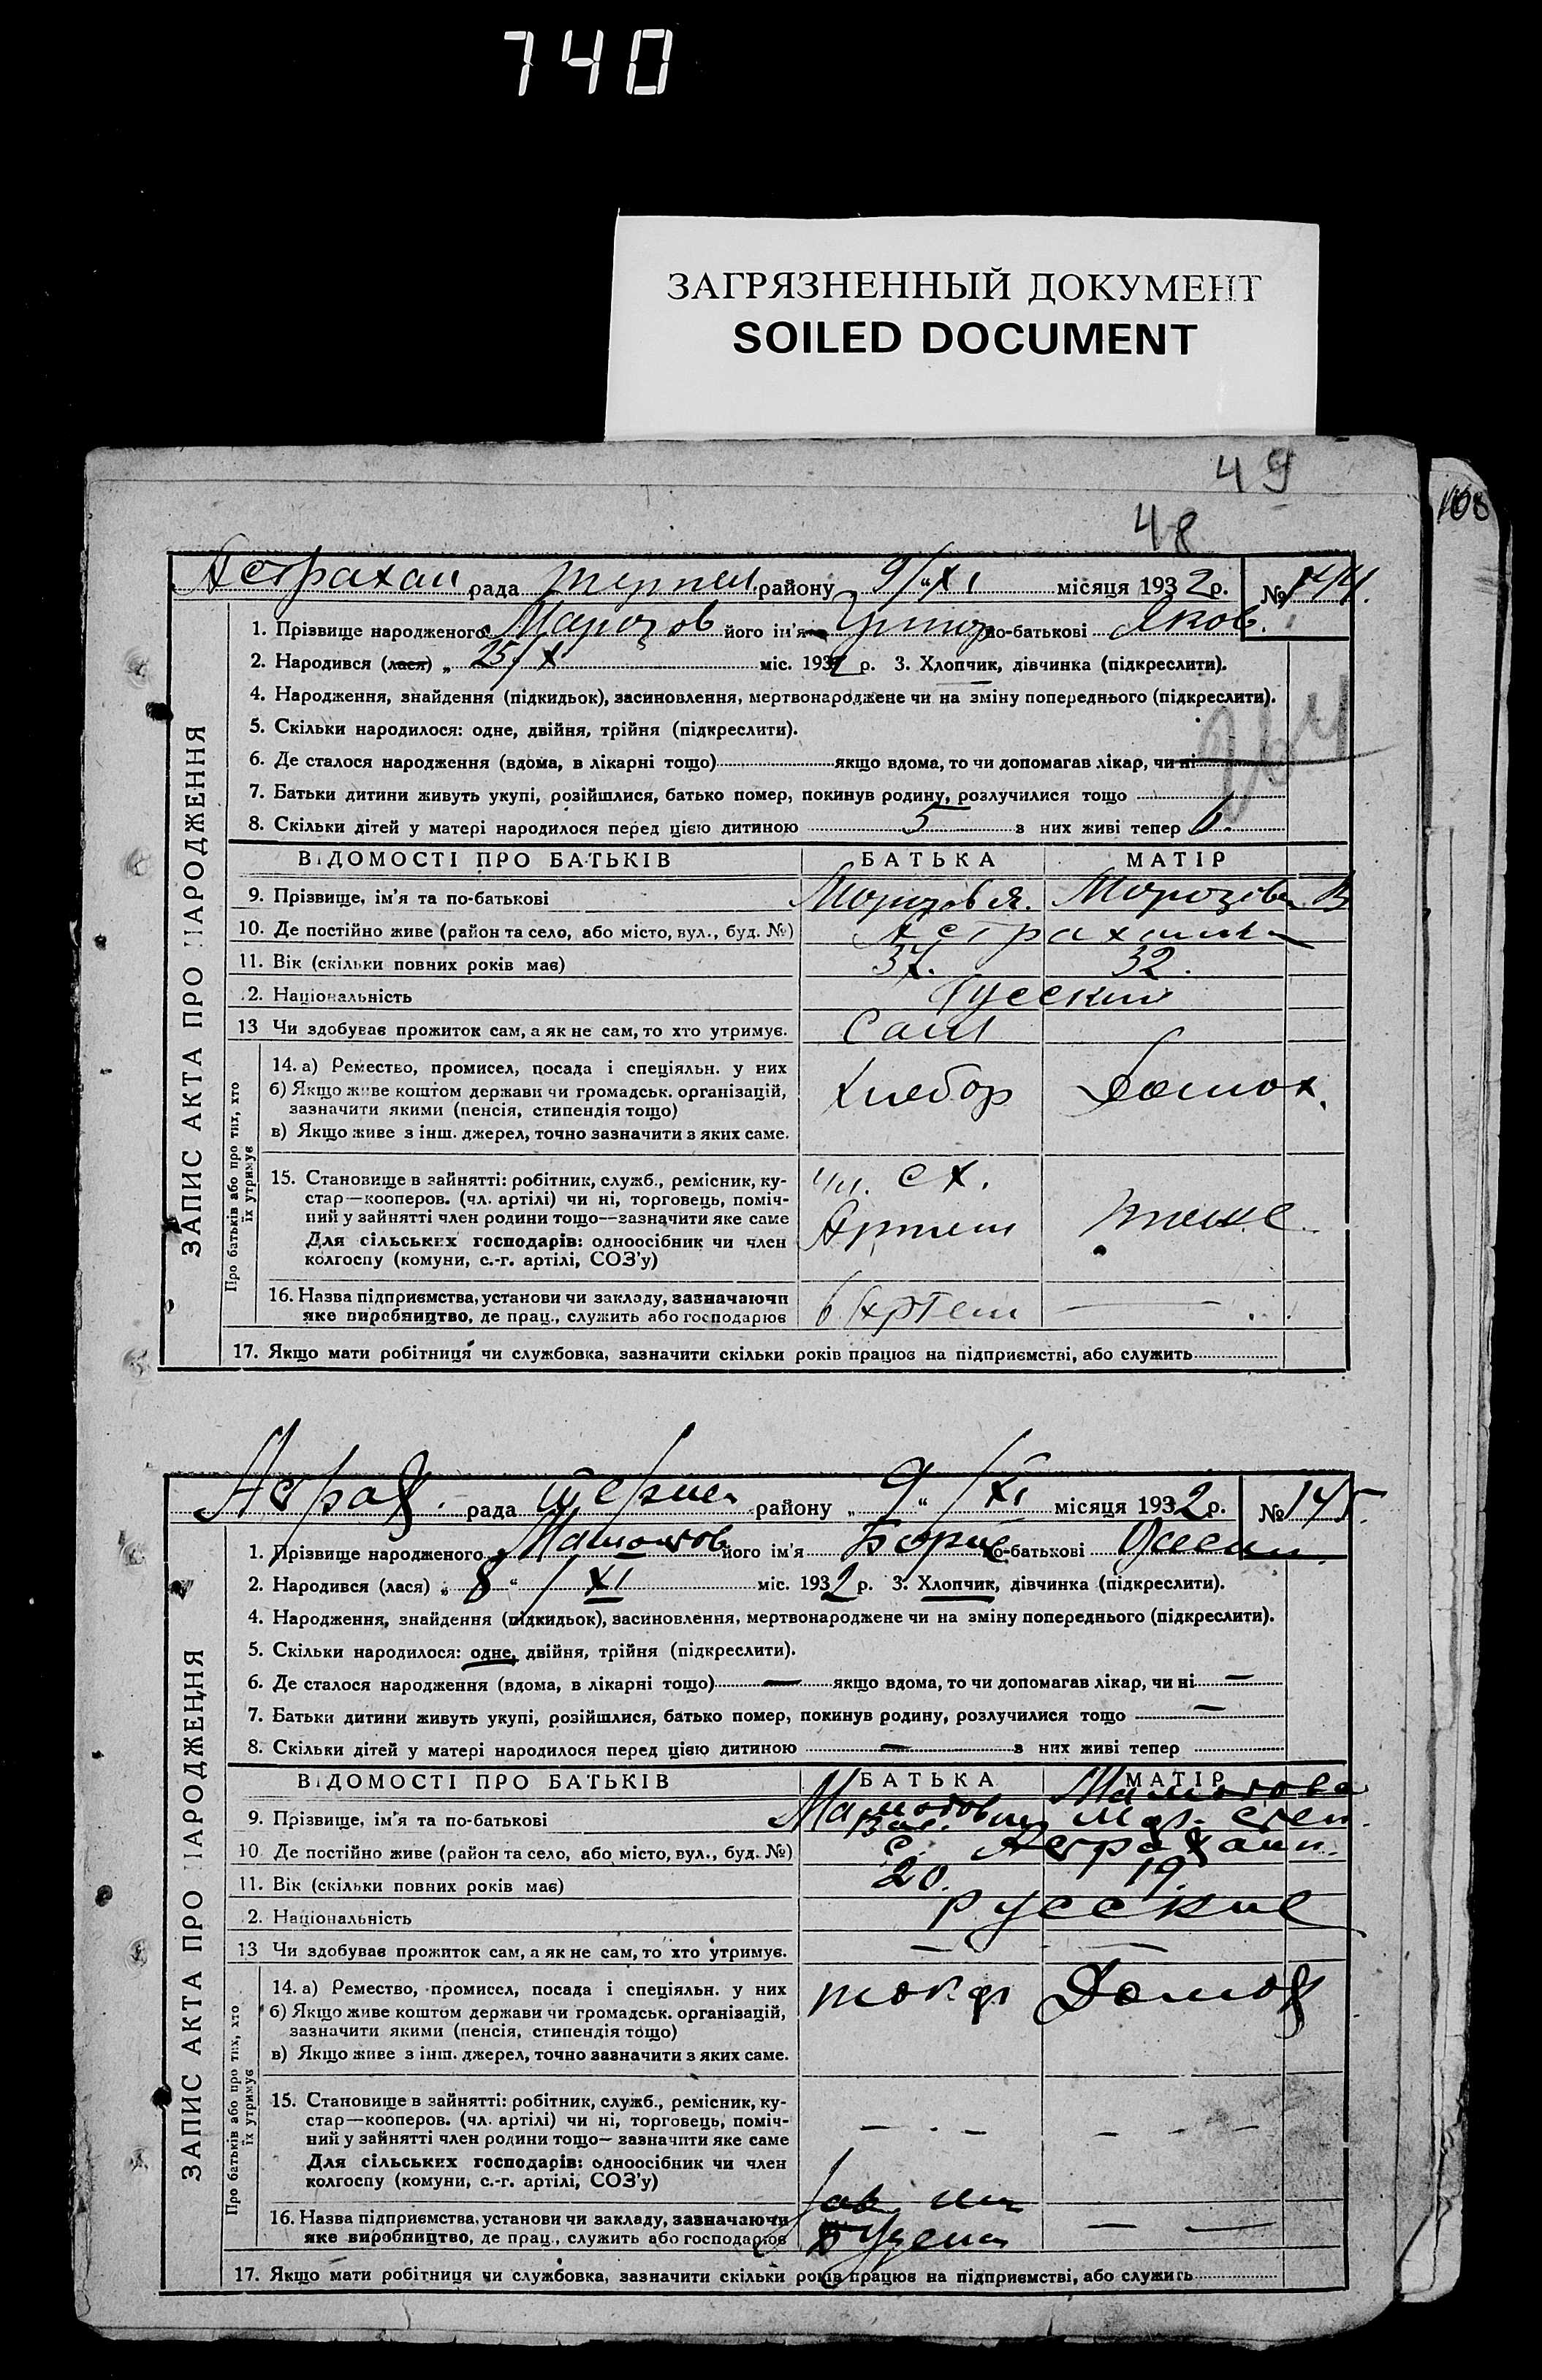 740
ЗАГРЯЗНЕННЫЙ ДОКУМЕНТ
SOILED DOCUMENT
49
48
108
ЗАПИС АКТА ПРО НАРОДЖЕННЯ
Астрахан рада району 9/XI місяця 1932 р. № 144.
1. Прізвище народженого Марозов його ім'я Григор по-батькові Яков.
2. Народився (лася) „ 25/X міс. 1932 р. 3. Хлопчик, дівчинка (підкреслити).
4. Народження, знайдення (підкидьок), засиновлення, мертвонароджене чи на зміну попереднього (підкреслити).
5. Скільки народилося: одне, двійня, трійня (підкреслити).
6. Де сталося народження (вдома, в лікарні тощо) якщо вдома, то чи допомагав лікар, чи ні
7. Батьки дитини живуть укупі, розійшлися, батько помер, покинув родину, розлучилися тощо
8. Скільки дітей у матері народилося перед цією дитиною 5 з них живі тепер
ВІДОМОСТІ ПРО БАТЬКІВ БАТЬКА МАТІР
9. Прізвище, ім'я та по-батькові Морозов Я. Морозова В
10. Де постійно живе (район та село, або місто, вул., буд. №) Астраханка
11. Вік (скільки повних років має) 37. 32.
12. Національність Русские
13 Чи здобуває прожиток сам, а як не сам, то хто утримує. Сам
Про батьків або про тих, хто їх утримує
14. а) Ремество, промисел, посада і спеціяльн. у них
б) Якщо живе коштом держави чи громадськ. організацій,
зазначити якими (пенсія, стипендія тощо)
Хлебор Домох.
в) Якщо живе з інш. джерел, точно зазначити з яких саме.
15. Становище в зайнятті: робітник, служб., ремісник, ку-
стар—кооперов. (чл. артілі) чи ні, торговець, поміч-
ний у зайнятті член родини тощо—зазначити яке саме
Для сільських господарів: одноосібник чи член
колгоспу (комуни, с.-г. артілі, СОЗ'у)
чл. СХ.
Артели тоже
16. Назва підприємства, установи чи закладу, зазначаючи
яке виробництво, де прац., служить або господарює
в Артели —
17. Якщо мати робітниця чи службовка, зазначити скільки років працює на підприємстві, або служить
ЗАПИС АКТА ПРО НАРОДЖЕННЯ
Астрах. рада району „ 9 “ /XI місяця 1932 р. № 145.
1. Прізвище народженого Мамонтов його ім'я Борис по-батькові
2. Народився (лася) „ 8 “ / XI міс. 1932 р. 3. Хлопчик, дівчинка (підкреслити).
4. Народження, знайдення (підкидьок), засиновлення, мертвонароджене чи на зміну попереднього (підкреслити).
5. Скільки народилося: одне, двійня, трійня (підкреслити).
6. Де сталося народження (вдома, в лікарні тощо) — якщо вдома, то чи допомагав лікар, чи ні —
7. Батьки дитини живуть укупі, розійшлися, батько помер, покинув родину, розлучилися тощо —
8. Скільки дітей у матері народилося перед цією дитиною — з них живі тепер
ВІДОМОСТІ ПРО БАТЬКІВ БАТЬКА МАТІР
9. Прізвище, ім'я та по-батькові
10 Де постійно живе (район та село, або місто, вул., буд. №) С. Астрахан.
11. Вік (скільки повних років має) 20. 19.
12. Національність Русские
13 Чи здобуває прожиток сам, а як не сам, то хто утримує. — —
Про батьків або про тих, хто їх утримує
14. а) Ремество, промисел, посада і спеціяльн. у них
б) Якщо живе коштом держави чи громадськ. організацій,
зазначити якими (пенсія, стипендія тощо)
Домох
в) Якщо живе з інш. джерел, точно зазначити з яких саме.
15. Становище в зайнятті: робітник, служб., ремісник, ку-
стар—кооперов. (чл. артілі) чи ні, торговець, поміч-
ний у зайнятті член родини тощо—зазначити яке саме
Для сільських господарів: одноосібник чи член
колгоспу (комуни, с.-г. артілі, СОЗ'у)
16. Назва підприємства, установи чи закладу, зазначаючи
яке виробництво, де прац., служить або господарює
17. Якщо мати робітниця чи службовка, зазначити скільки років працює на підприємстві, або служить